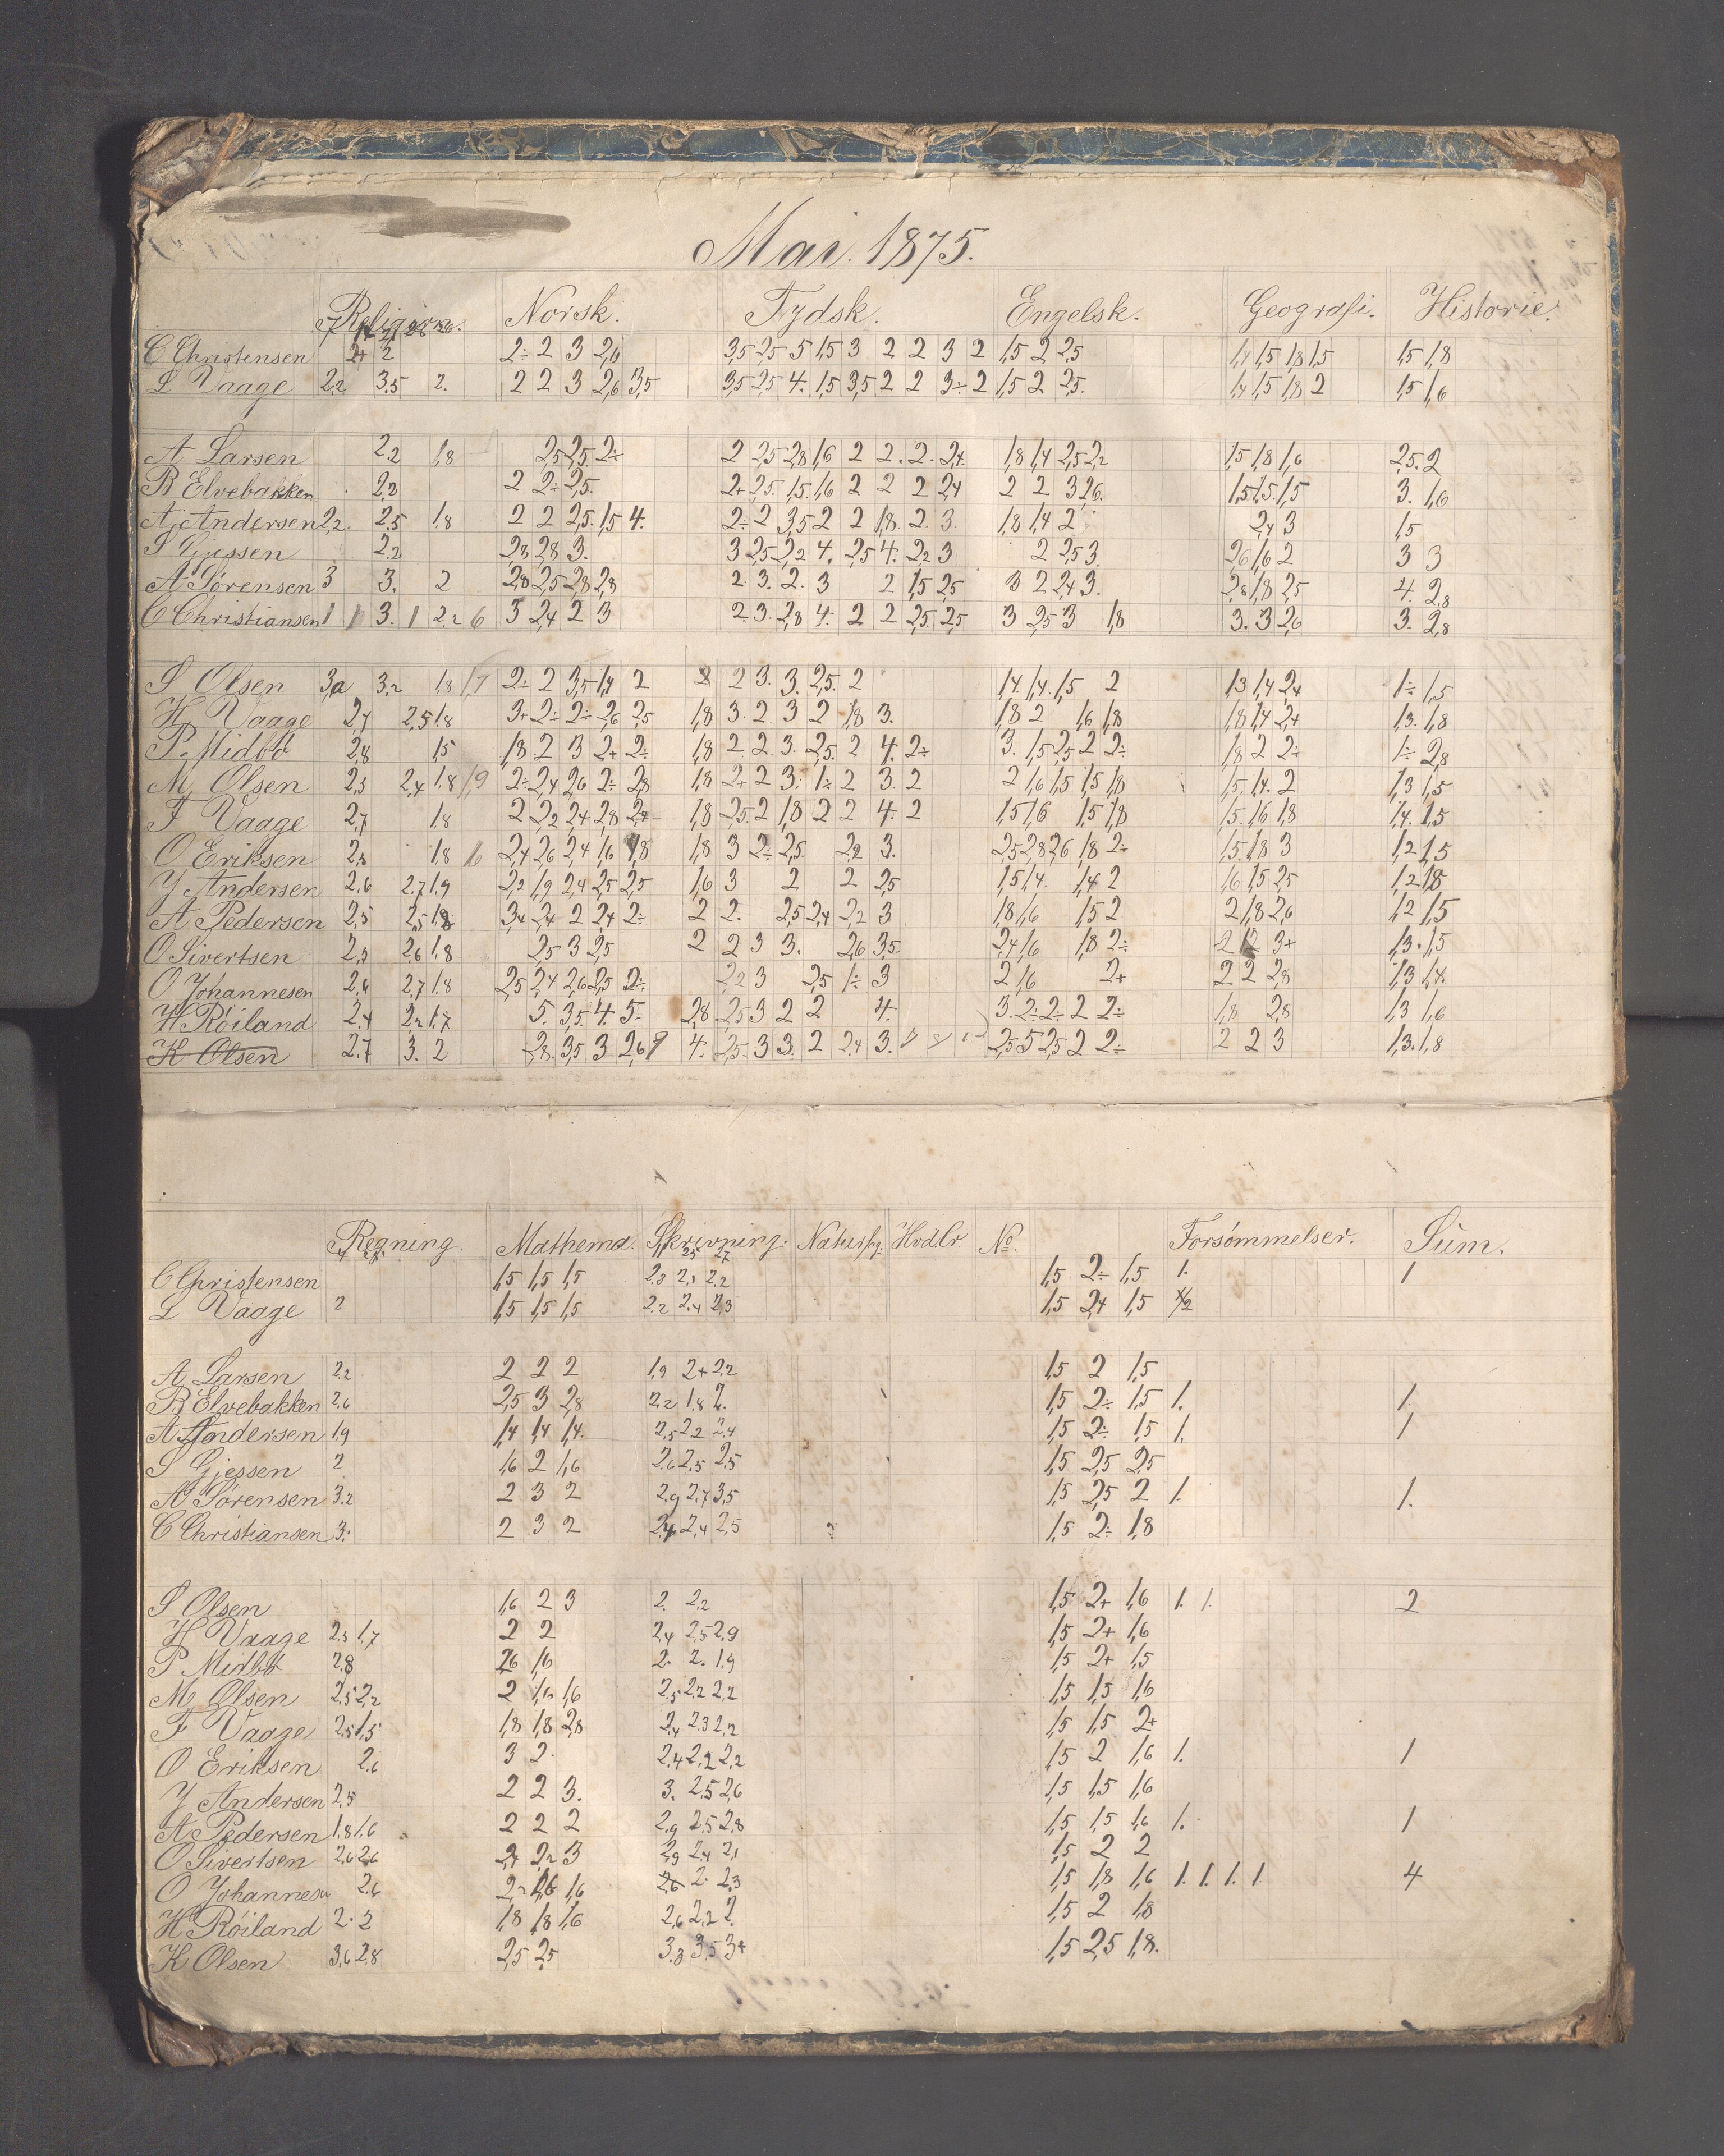 Mai. 1875.
Religion. Norsk. Tydsk. Engelsk. Geografi. Historie.
C Christensen 2+ 2 2÷ 2 3 2,6 3,5 2,5 5 1,5 3 2 2 3 2 1,5 2 2,5 1,4 1,5 1,8 1,5 1,5 1,8
L Vaage 2,2 3,5 2. 2 2 3 2,6 3,5 3,5 2,5 4. 1,5 3,5 2 2 3÷ 2 1,5 2 2,5. 1,4 1,5 1,8 2 1,5 1,6
A Larsen 2,2 1,8 2,5 2,5 2÷ 2 2,5 2,8 1,6 2 2. 2. 2,4. 1,8 1,4 2,5 2,2 1,5 1,8 1,6 2,5. 2
B Elvebakken 2,3 2 2÷ 2,5. 2+ 2,5. 1,5. 1,6 2 2 2 2,4 2 2 3 2,6. 1,5 1,5. 1,5 3. 1,6
A Andersen 2,2. 2,5 1,8 2 2 2,5. 1,5 4. 2÷ 2 3,5 2 2 1,8. 2. 3. 1,8 1,4 2 2,4 3 1,5
S Gjessen 2,2 2,8 2,8 3. 3 2,5 2,2 4. 2,5 4. 2,2 3 2 2,5 3. 2,6 1,6 2 3 3
A Sørensen 3 3. 2 2,8 2,5 2,8 2,8 2. 3. 2. 3 2 1,5 2,5 3 2 2,4 3. 2,8 1,8 2,5 4. 2,8
C Christiansen 1 1 3. 1 2,2 6 3 2,4 2 3 2. 3. 2,8 4. 2 2 2,5. 2,5 3 2,5 3 1,8 3. 3 2,6 3. 2,8
S Olsen 3,2 1,8 1,7 2÷ 2 3,5 1,4 2 2 3. 3. 2,5. 2 1,4. 1,4. 1,5 2 1,3 1,4 2,4 1÷ 1,5
H Vaage 2,7 2,5 1,8 3+ 2÷ 2÷ 2,6 2,5 1,8 3. 2. 3 2 1,8 3. 1,8 2 1,6 1,8 1,8 1,4 2,4 1,3. 1,8
P Midbö 2,8 1,5 1,8. 2 3 2+ 2÷ 1,8 2. 2. 3. 2,5. 2 4. 2÷ 3. 1,5 2,5 2 2÷ 1,8 2 2÷ 1÷ 2,8
M Olsen 2,3 2,4 1,8 1,9 2÷ 2,4 2,6 2÷ 2,8 1,8 2+ 2 3. 1÷ 2 3. 2 2 1,6 1,5 1,5 1,8 1,5. 1,4. 2 1,3 1,5
F Vaage 2,7 1,8 2 2,2 2,4 2,8 2,4 1,8 2,5. 2 1,8 2 2 4. 2 1,5 1,6 1,5 1,8 1,5. 1,6 1,8 1,4. 1,5
O Eriksen 2,3 1,8 2,4 2,6 2,4 1,6 1,8 1,8 3 2÷ 2,5. 2,2 3. 2,5 2,8 2,6 1,8 2÷ 1,5. 1,8 3 1,2 1,5
J Andersen 2,6 2,7 1,9 2,2 1,9 2,4 2,5 2,5 1,6 3 2 2 2,5 1,5 1,4. 1,4 2 1,6 1,5 2,5 1,2 1,8
A Pedersen 2,5 2,5 1,8 3,4 2,4 2 2,4 2÷ 2 2. 2,5 2,4 2,2 3 1,8 1,6 1,5 2 2 1,8 2,6 1,2 1,5
O Sivertsen 2,3 2,6 1,8 2,5 3 2,5 2 2 3 3. 2,6 3,5. 2,4 1,6 1,8 2÷ 2 3+ 1,3. 1,5
O Johannesen 2,6 2,7 1,8 2,5 2,4 2,6 2,5 2÷ 2,2 3 2,5 1÷ 3 2 1,6 2+ 2 2 2,8 1,3 1,4.
H Röiland 2,4 2,2 1,7 5. 3,5. 4. 5. 2,8 2,5 3 2 2 4. 3. 2÷ 2÷ 2 2÷ 1,8 2,8 1,3 1,6
K Olsen 2,7 3. 2 2,8. 3,5 3 2,6 4. 2,5. 3 3. 2 2,4 3. 2,5 5 2,5 2 2÷ 2 2 3 1,3. 1,8
Regning Mathema. Skrivning. Naturfag. No. Forsømmelser. Sum.
C Christensen 1,5 1,5 1,5 2,3 2,1 2,2 1,5 2÷ 1,5 1. 1
L Vaage 2 1,5 1,5 1,5 2,2 2,4 2,3 1,5 2,4 1,5 1/2
A Larsen 2,2 2 2 2 1,9 2+ 2,2 1,5 2 1,5
B Elvebakken 2,6 2,5 3 2,8 2,2 1,8 2. 1,5 2÷ 1,5 1. 1
A Andersen 1,9 1,4 1,4 1,4. 2,5 2,2 2,4 1,5 2÷ 1,5 1. 1
S Gjessen 2 1,6 2 1,6 2,6 2,5 2,5 1,5 2,5 2,5
A Sørensen 3,2 2 3 2 2,9 2,7 3,5 1,5 2,5 2 1. 1.
C Christiansen 3. 2 3 2 2,4 2,4 2,5 1,5 2÷ 1,8
S Olsen 1,6 2 3 2. 2,2 1,5 2+ 1,6 1. 1. 2
H Vaage 2,3 1,7 2 2 2,4 2,5 2,9 1,5 2+ 1,6
P Midbö 2,8 2,6 1,6 2. 2. 1,9 1,5 2+ 1,5
M Olsen 2,5 2,2 2 1,6 1,6 2,5 2,2 2,2 1,5 1,5 1,6
F Vaage 2,5 1,5 1,8 1,8 2,8 2,4 2,3 2,2 1,5 1,5 2+
O Eriksen 2,6 3 2. 2,4 2,2 2,2 1,5 2 1,6 1. 1
J Andersen 2,5 2 2 3. 3. 2,5 2,6 1,5 1,5 1,6
A Pedersen 1,8 1,6 2 2 2 2,9 2,5 2,8 1,5 1,5 1,6 1. 1
O Sivertsen 2,6 2,6 2,4 2,2 3 2,9 2,4 2,1 1,5 2 2
O Johannesen 2,6 2,2 1,6 1,6 2,6 2. 2,3 1,5 1,8 1,6 1. 1. 1. 1. 4
H Röiland 2. 2 1,8 1,8 1,6 2,6 2,2 2. 1,5 2 1,8
K Olsen 3,6 2,8 2,5 2,5 3,3 3,5 3+ 1,5 2,5 1,8.